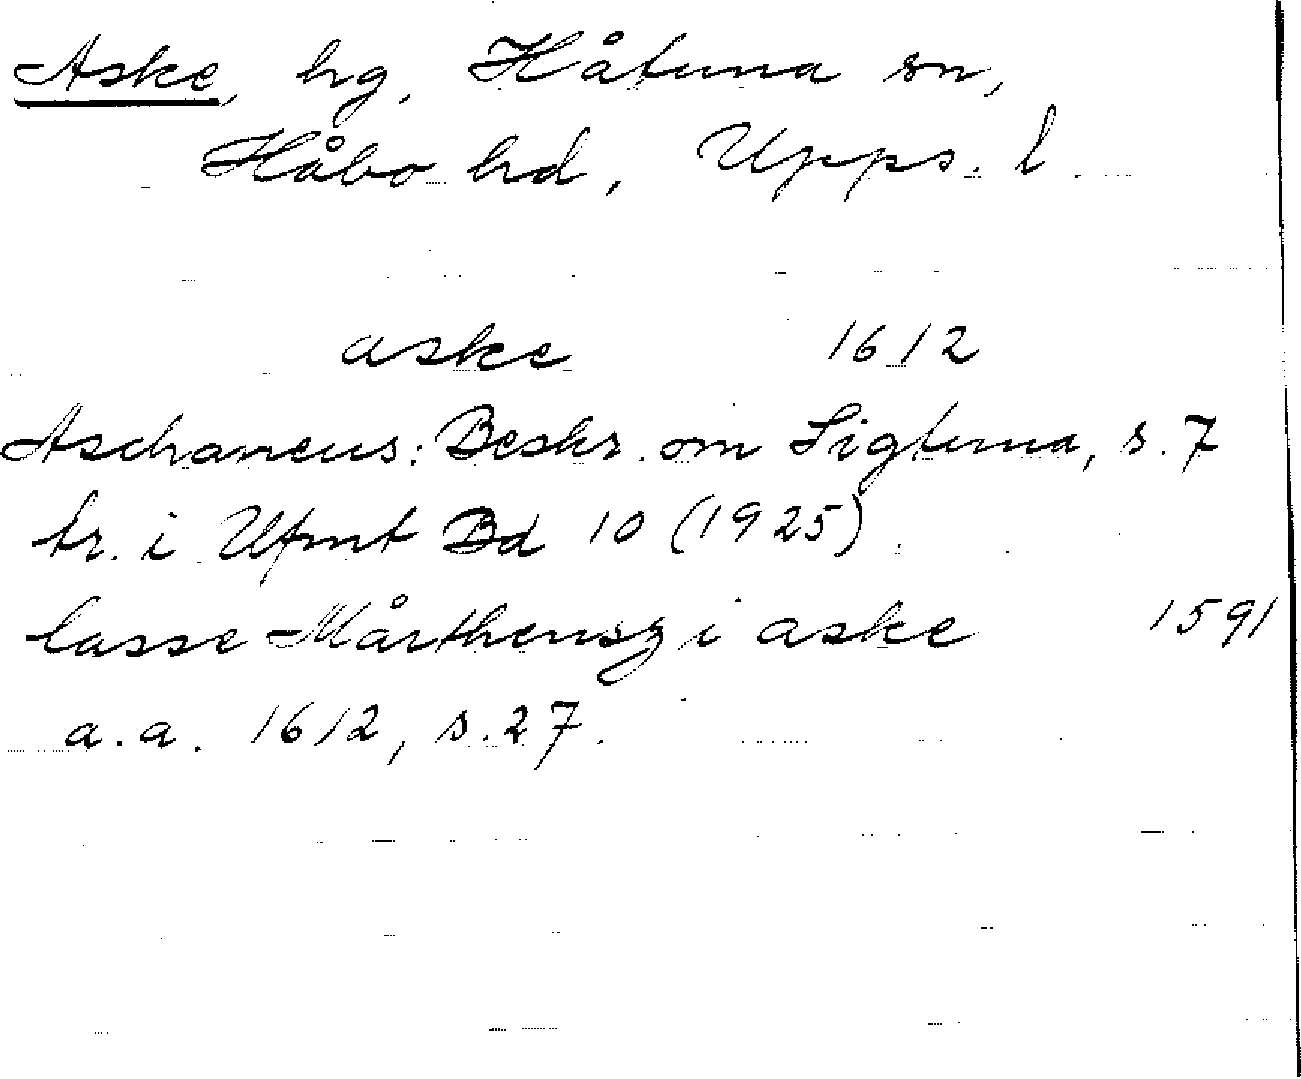 Aske, hg, Håtuna sn,
Håbo hd, Upps. l
aske 1612
Aschaneus: Beskr. om Sigtuna, s. 7
tr. i Ufmt Bd 10 (1925).
lasse Mårthensz i aske 1591
a.a. 1612, s. 27.